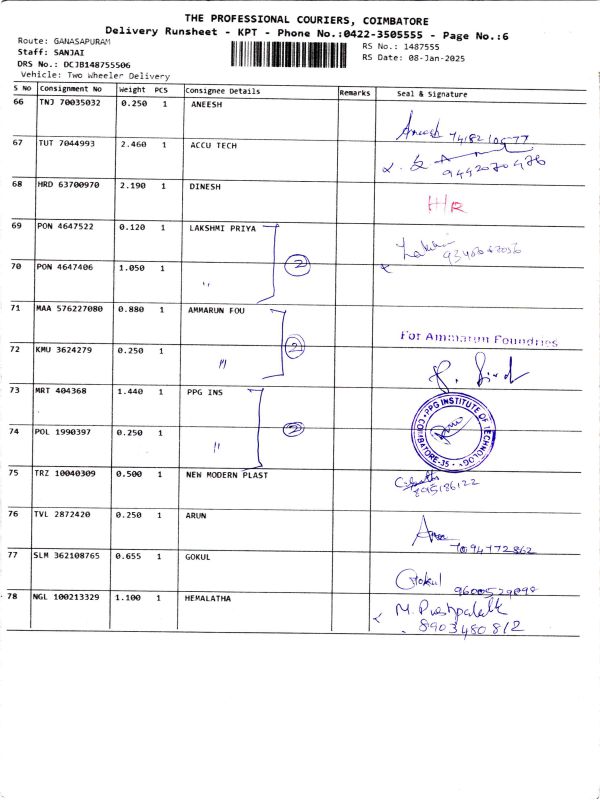 THE PROFESSIONAL COURIERS, COIMBATORE
Delivery Runsheet - KPT - Phone No.:0422-3505555 - Page No.:6
Route: GANASAPURAM
RS No.: 1487555
Staff: SANJAI
RS Date: 08-Jan-2025
DRS No.: DCJB148755506
Vehicle: Two Wheeler Delivery
S No Consignment No Weight PCS Consignee Details Remarks Seal & Signature
66 TNJ 70035032 0.250 1 ANEESH
Aneesh
67 TUT 7044993 2.460 1 ACCU TECH
9442070476
68 HRD 63700970 2.190 1 DINESH
H/R
69 PON 4647522 0.120 1 LAKSHMI PRIYA
2
70 PON 4647406 1.050 1 "
71 MAA 576227080 0.880 1 AMMARUN FOU
2
For Ammarun Foundries
72 KMU 3624279 0.250 1 "
73 MRT 404368 1.440 1 PPG INS
2
PPG INSTITUTE OF TECHNOLOGY COIMBATORE-35
74 POL 1990397 0.250 1 "
75 TRZ 10040309 0.500 1 NEW MODERN PLAST
895186122
76 TVL 2872420 0.250 1 ARUN
7094772862
77 SLM 362108765 0.655 1 GOKUL
Gokul
78 NGL 100213329 1.100 1 HEMALATHA
M.
8903480812